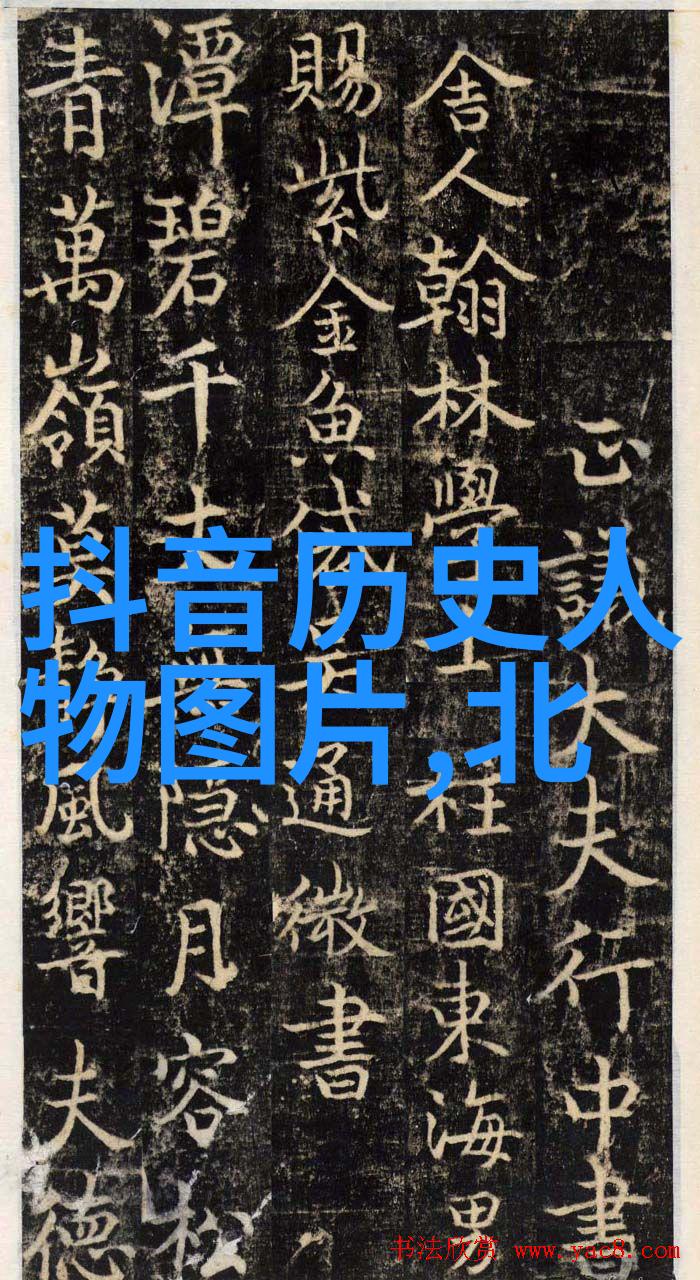 正議大夫行中書
舍人翰林學士柱國東海男
賜紫金魚袋通微書
潭碧千隱月容松
青萬嶺風響夫德
抖音历史人
物图片,北
书法欣赏 www.yac8.com